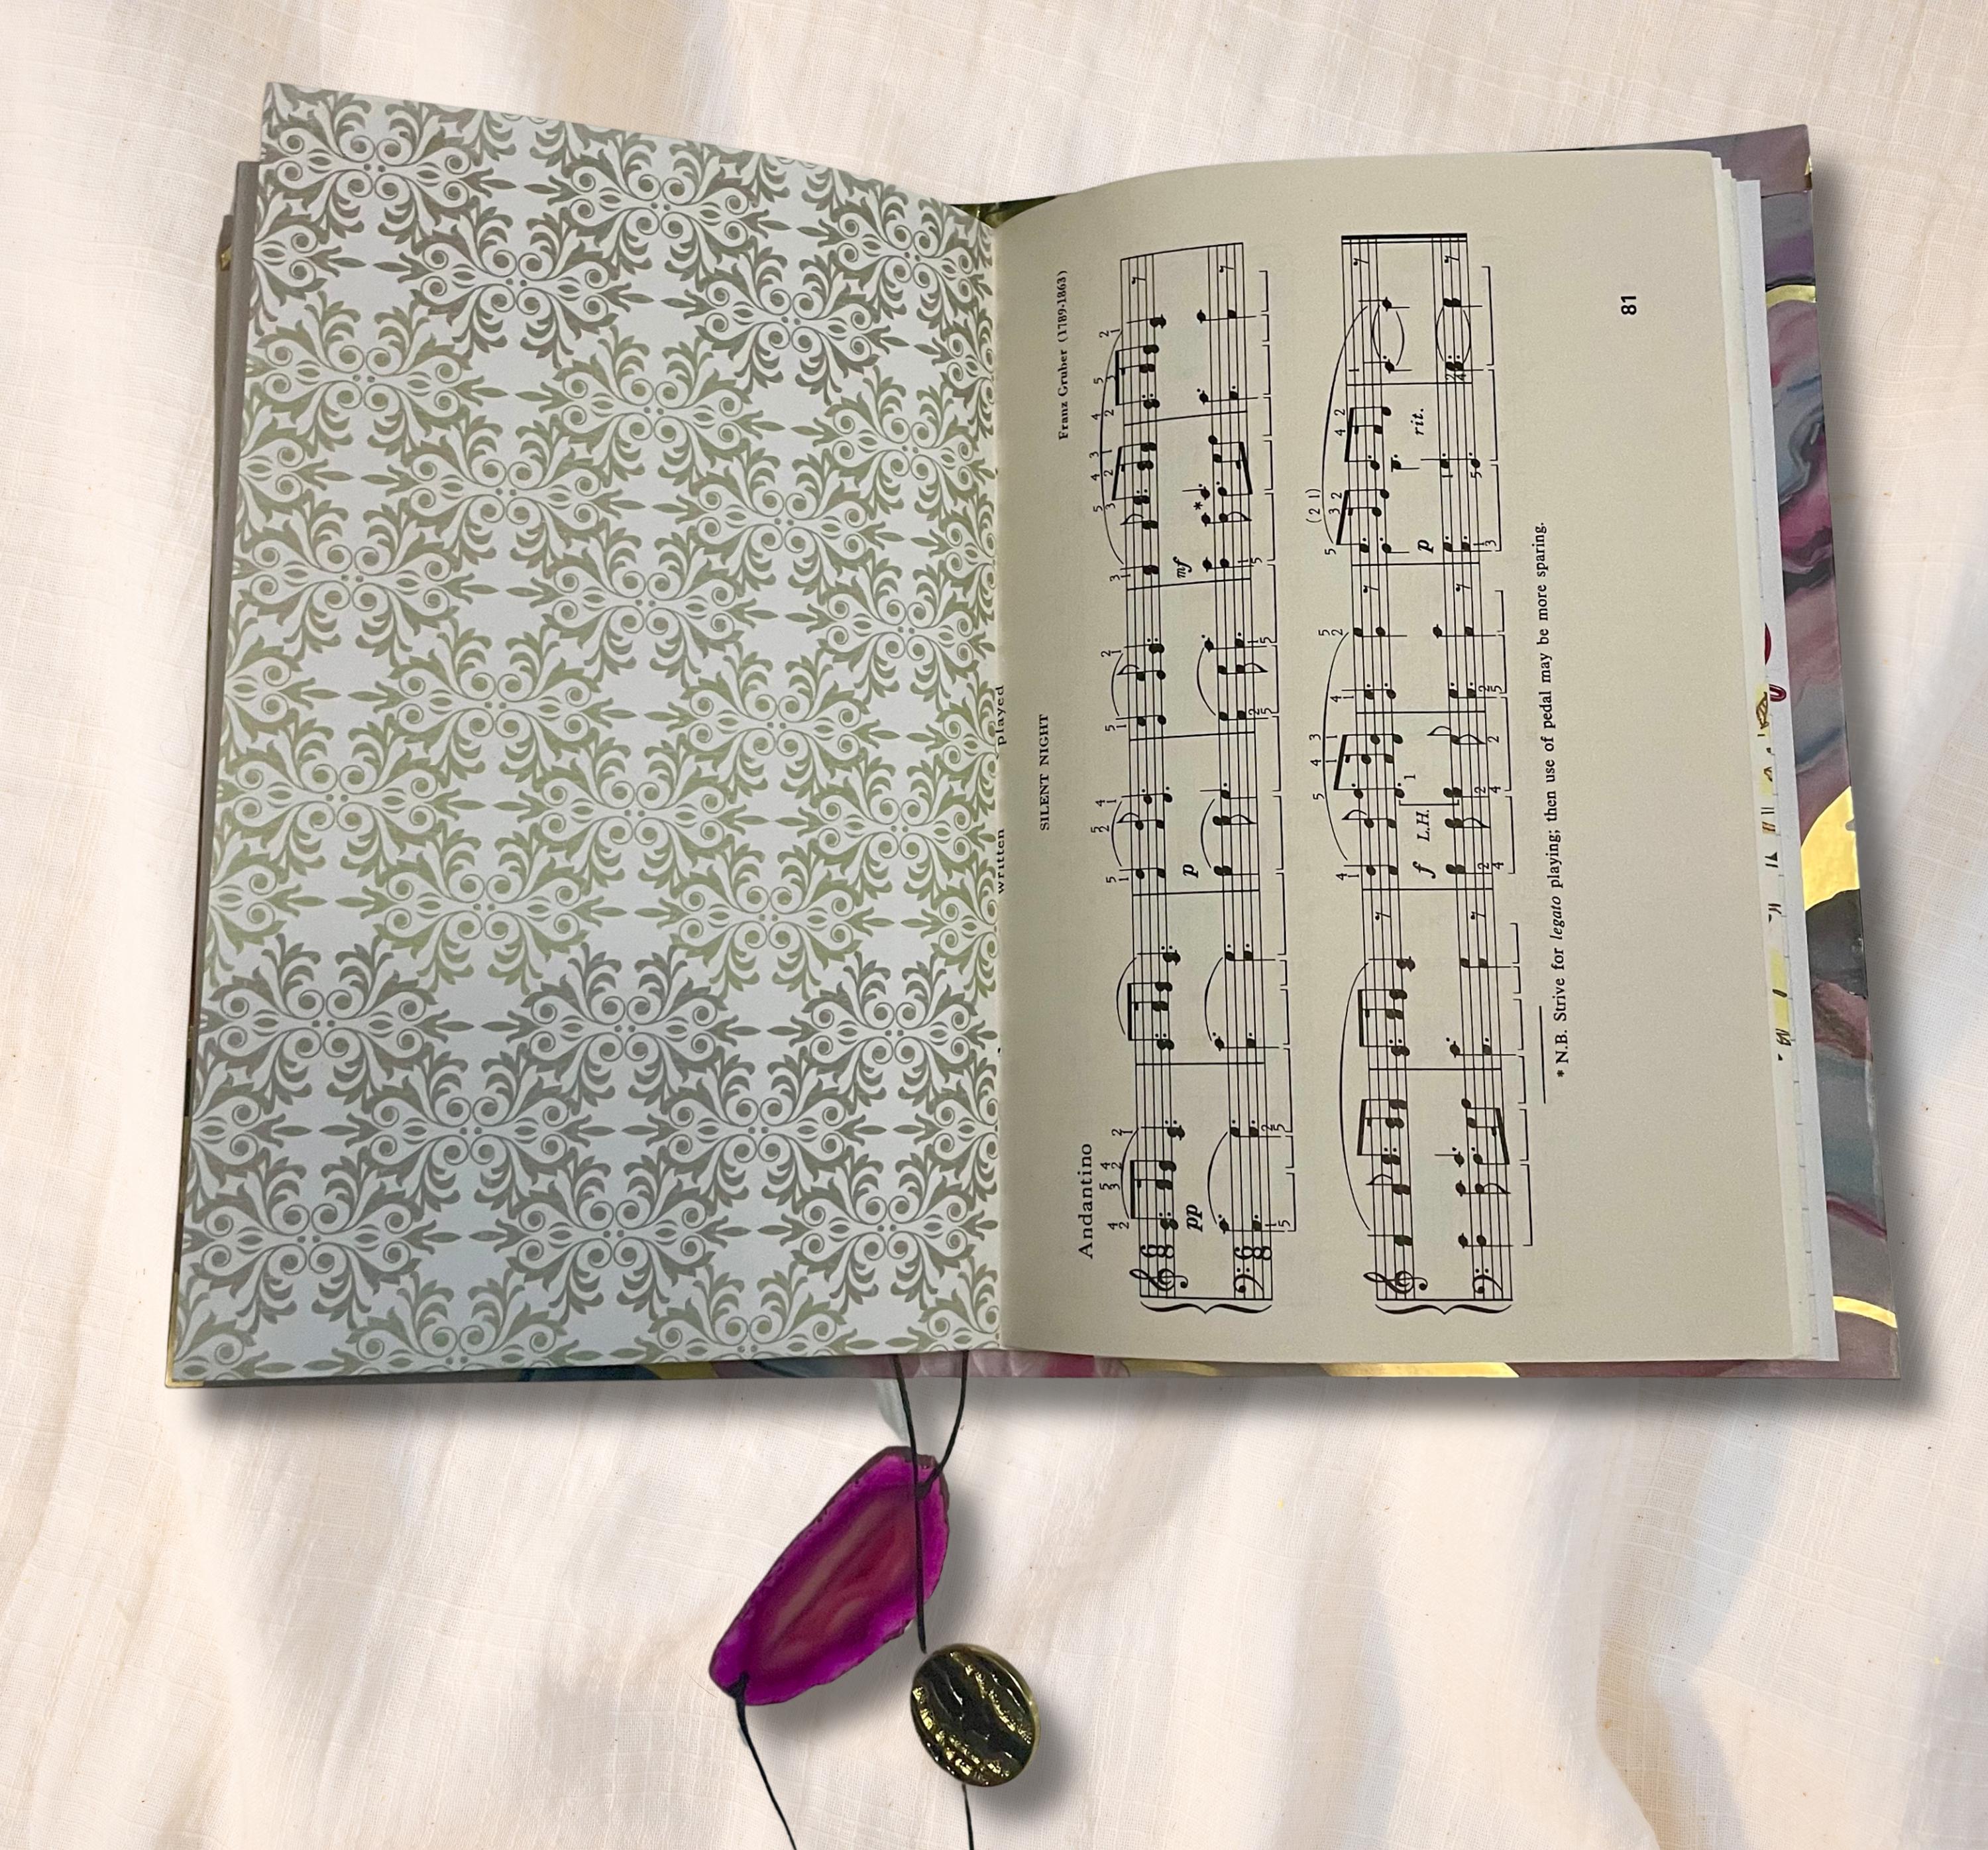 written played
SILENT NIGHT
Franz Gruber (1789-1863)
Andantino
pp
p
mf
*
f
L.H.
p
rit.
* N.B. Strive for legato playing; then use of pedal may be more sparing.
81